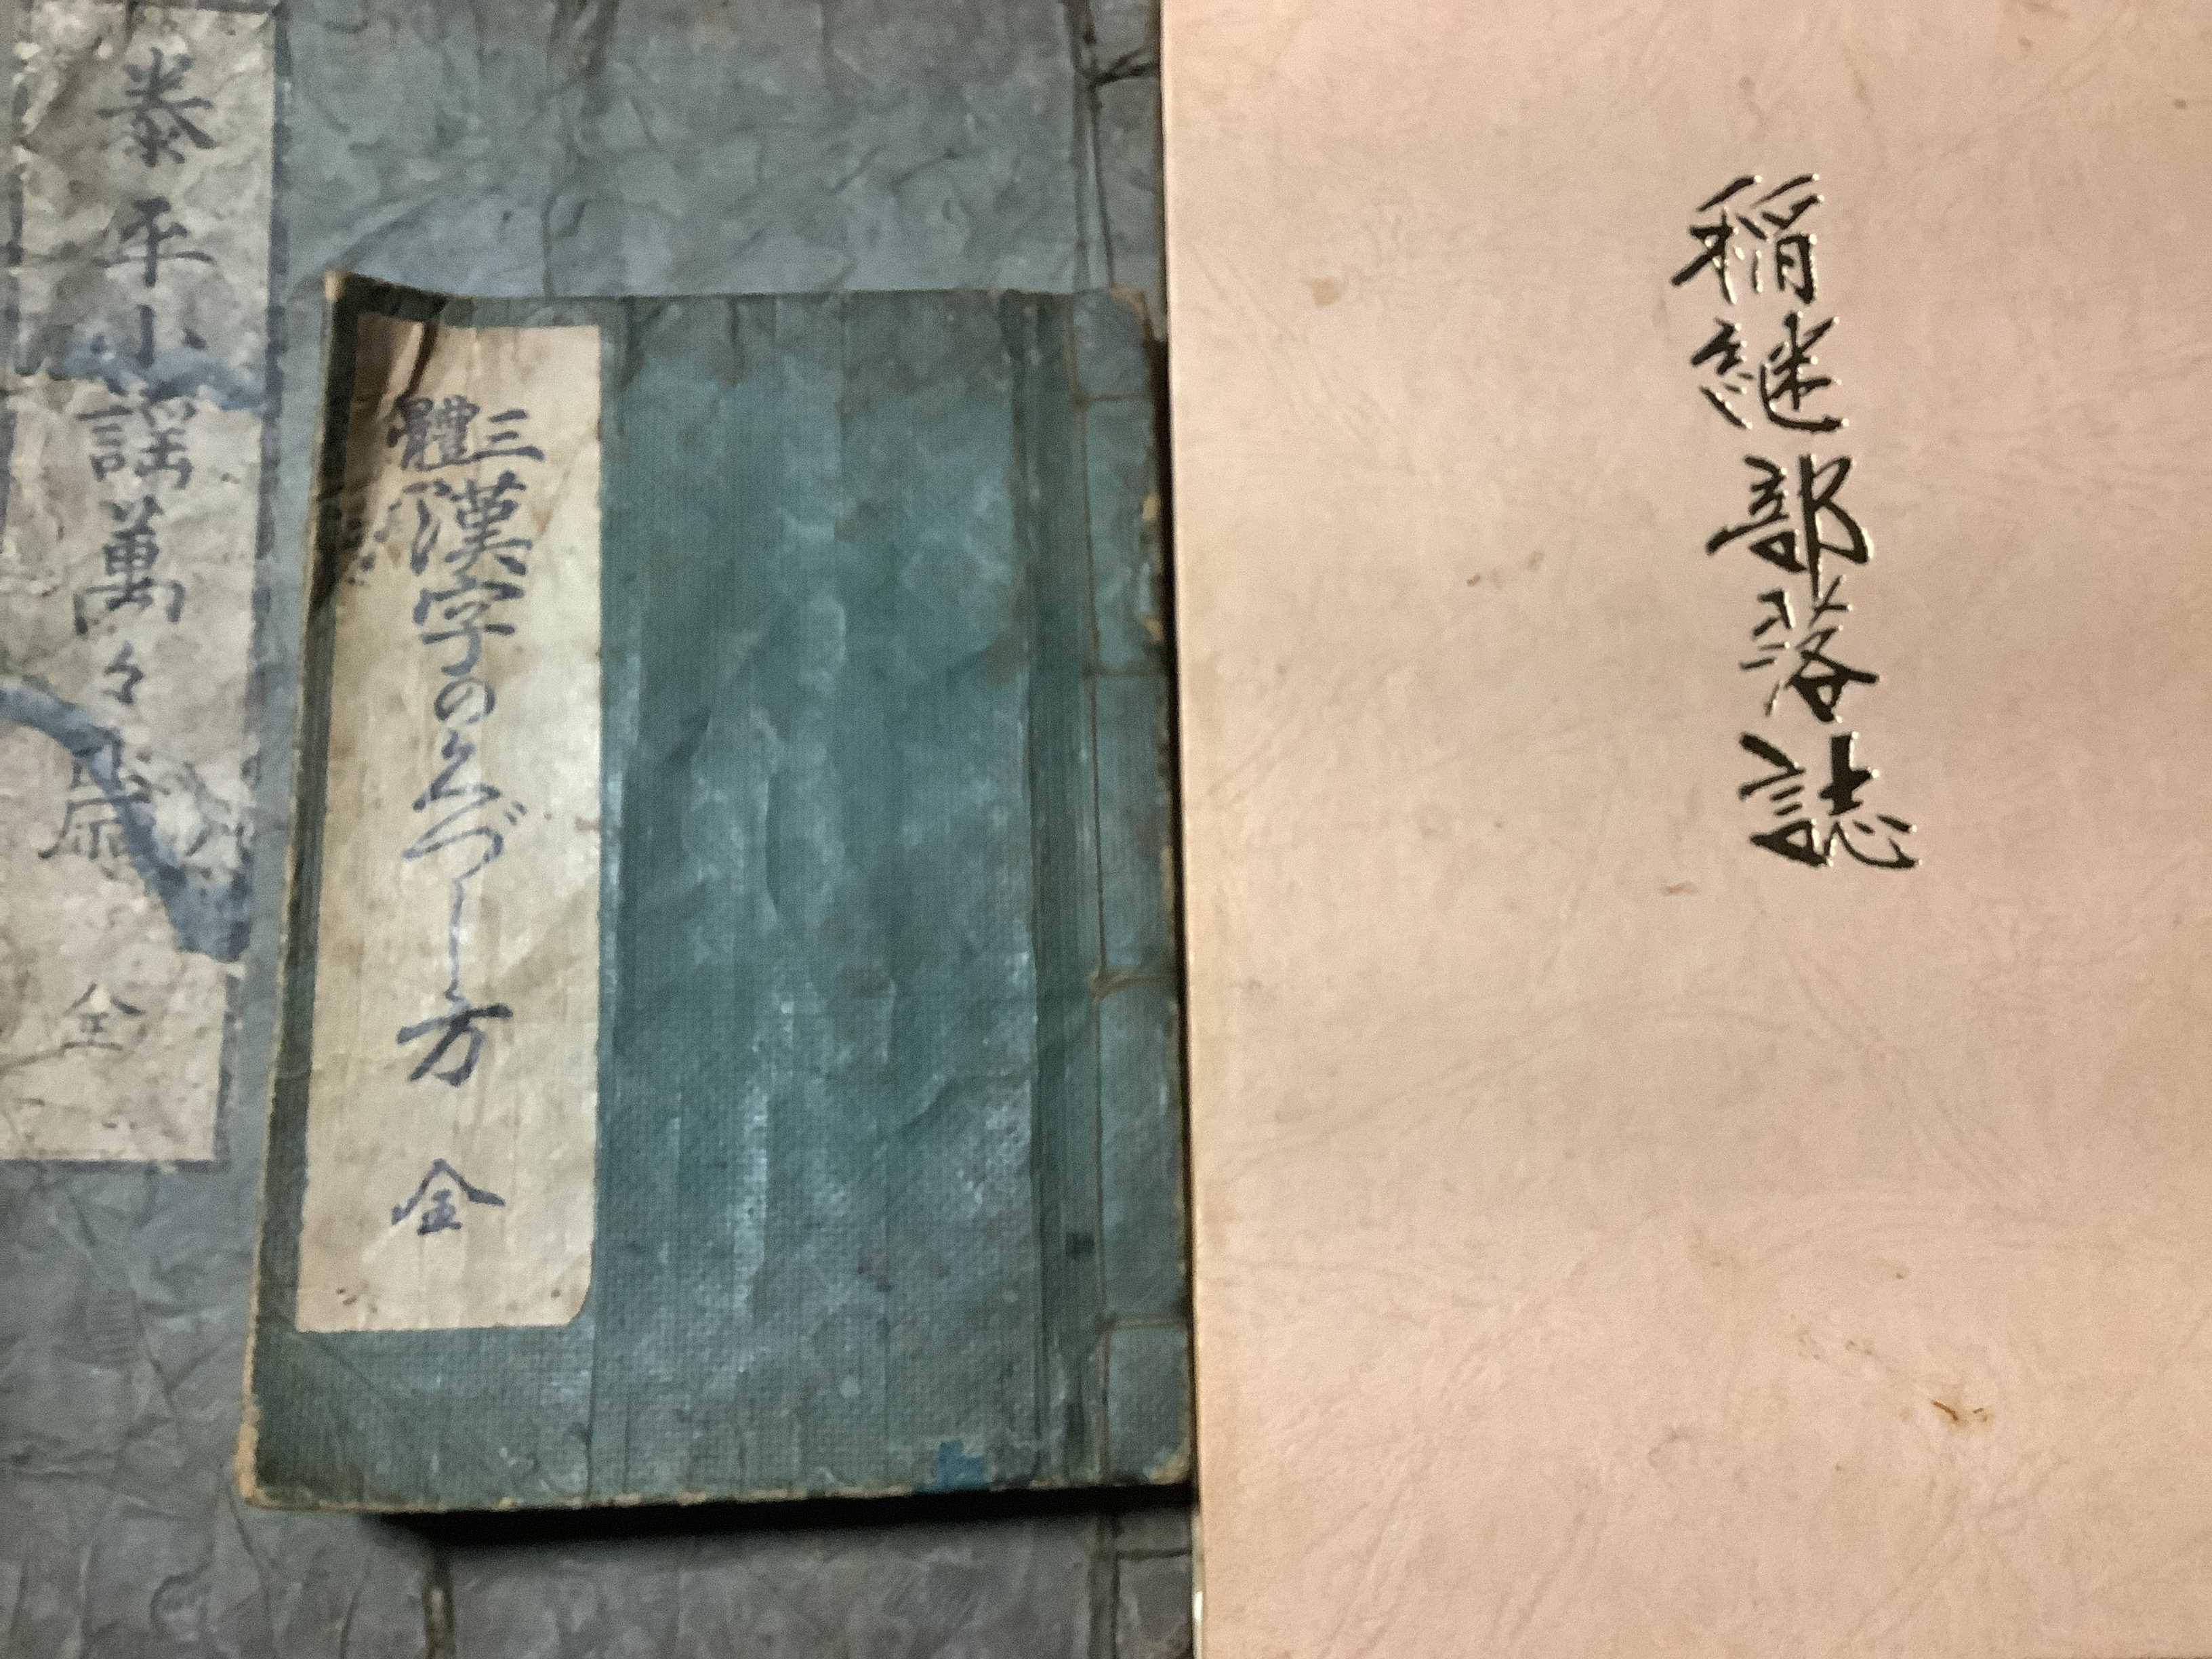 稲継部落誌
三體漢字のくづし方 全
泰平小謡萬々扇 全